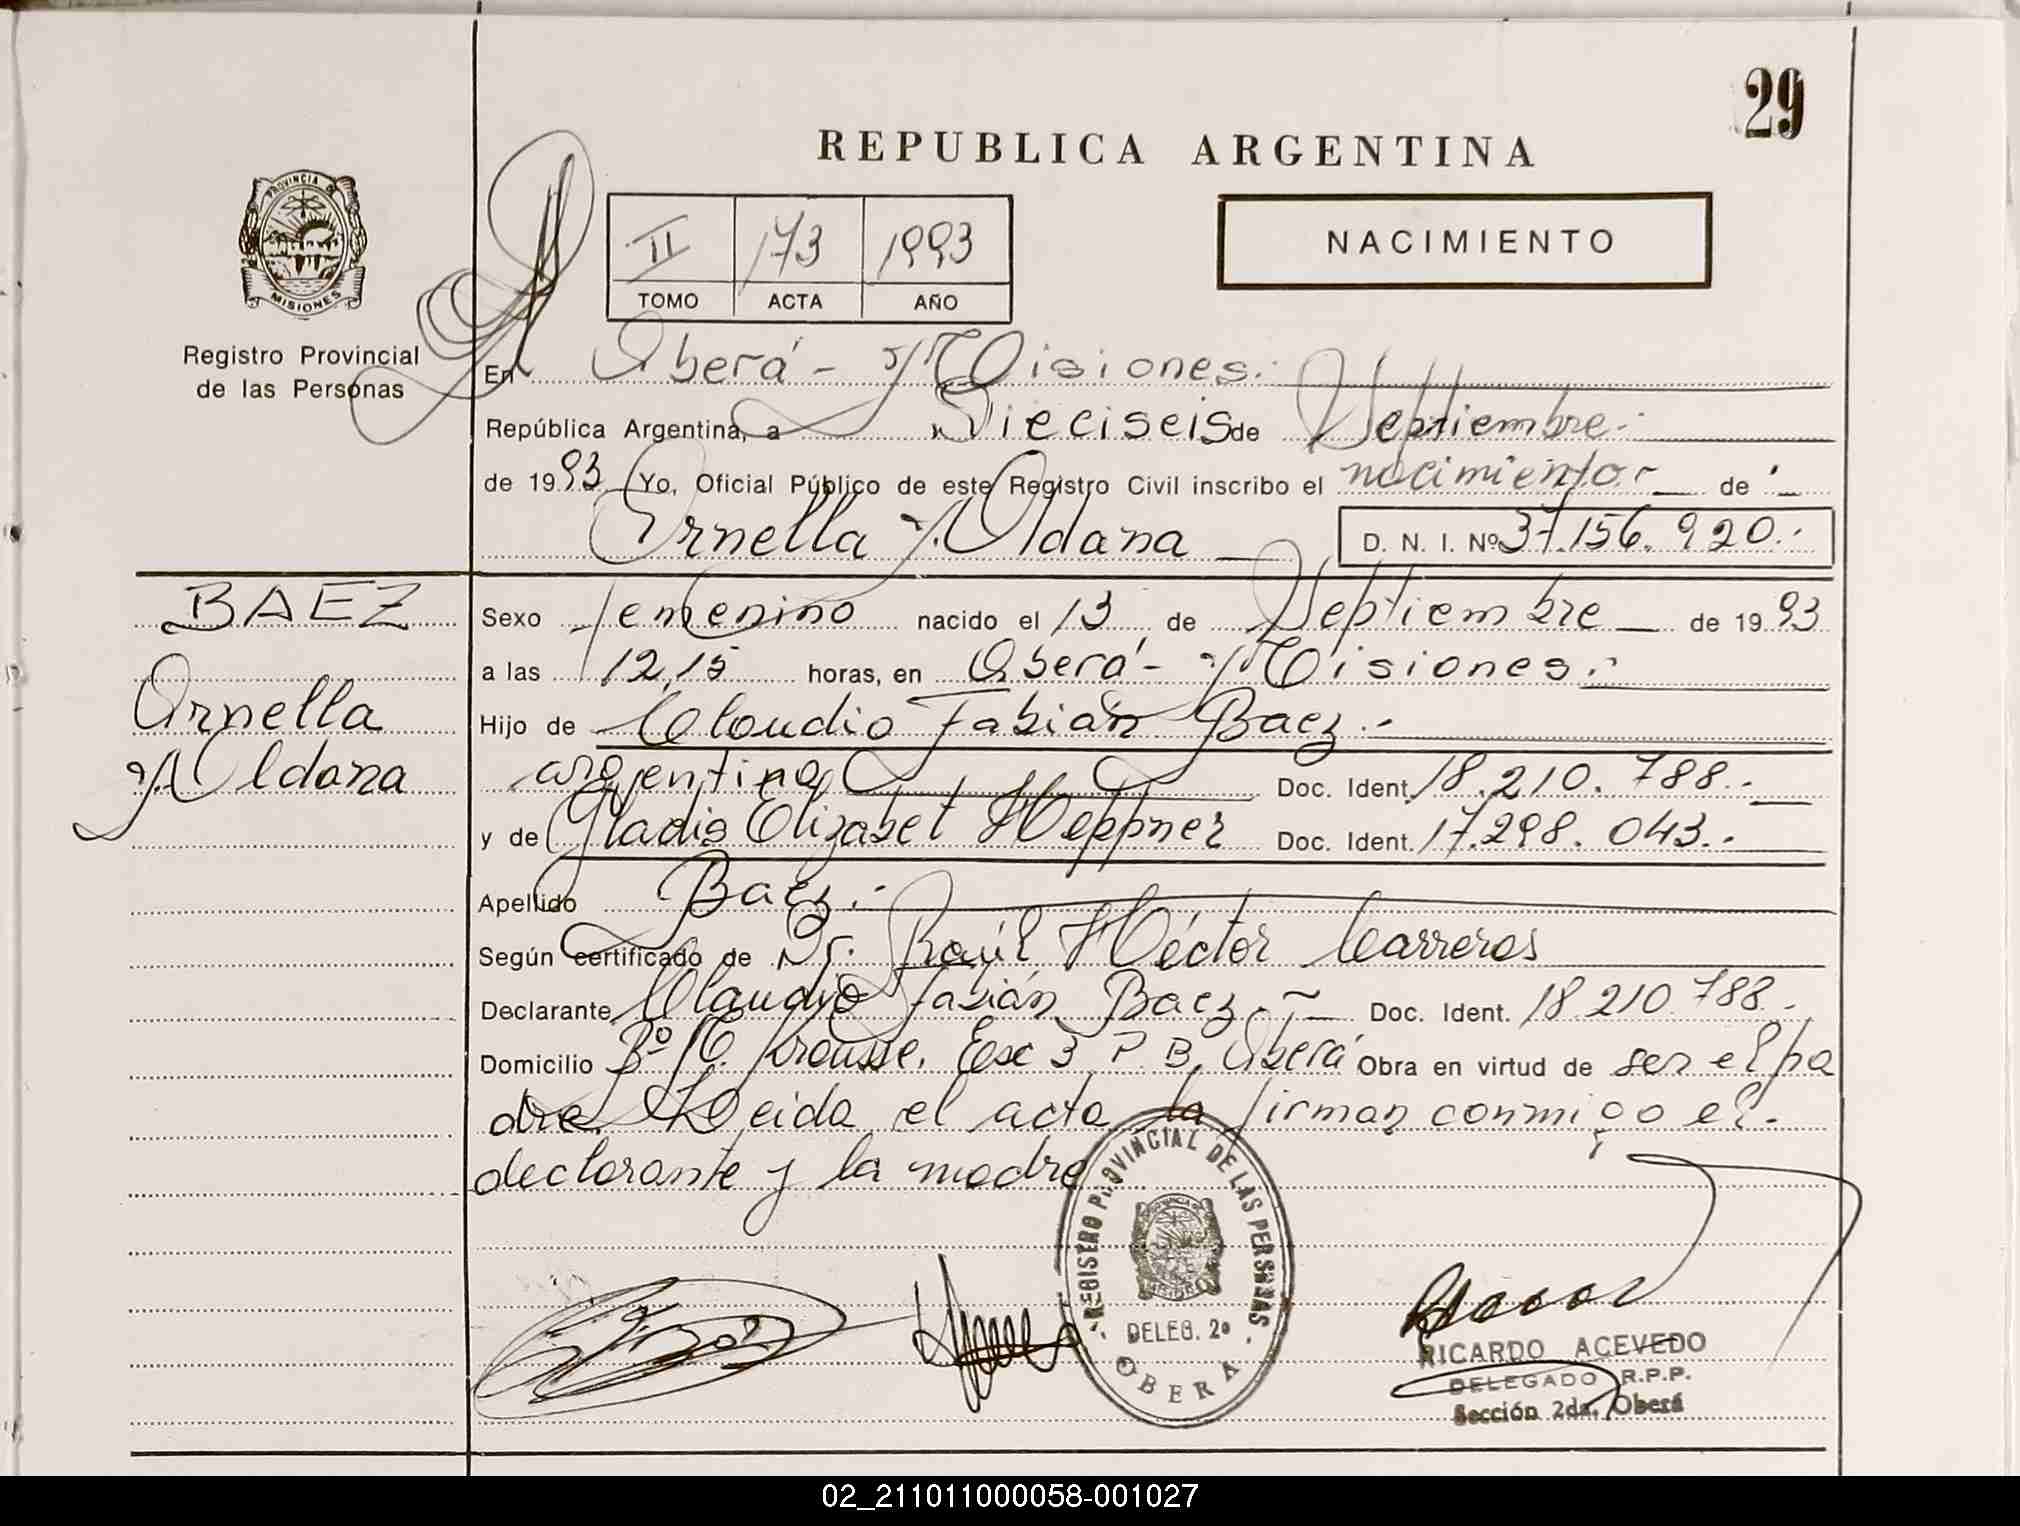 29
REPUBLICA ARGENTINA
PROVINCIA DE
MISIONES
Registro Provincial
de las Personas
II 173 1993
TOMO ACTA AÑO
NACIMIENTO
En Oberá - Misiones.
República Argentina, a Dieciseis de Septiembre
de 1993 Yo, Oficial Público de este Registro Civil inscribo el nacimiento de
Ornella Aldana D. N. I. Nº 37.156.920.
BAEZ
Ornella
Aldana
Sexo femenino nacido el 13 de Septiembre de 1993
a las 12,15 horas, en Oberá - Misiones.
Hijo de Claudio Fabián Baez.-
argentino Doc. Ident. 18.210.788.-
y de Gladis Elizabet Heppner Doc. Ident. 17.298.043.-
Apellido Baez.-
Según certificado de Dr. Raúl Héctor Carreros
Declarante Claudio Fabián Baez.- Doc. Ident. 18.210.788.-
Domicilio Bº Krausse, Esc 3 P. B. Oberá Obra en virtud de ser el pa
dre. Leida el acta la firman conmigo el
declarante y la madre
REGISTRO PROVINCIAL DE LAS PERSONAS
DELEG. 2º
OBERA
RICARDO ACEVEDO
DELEGADO R.P.P.
Sección 2da. Oberá
02_211011000058-001027